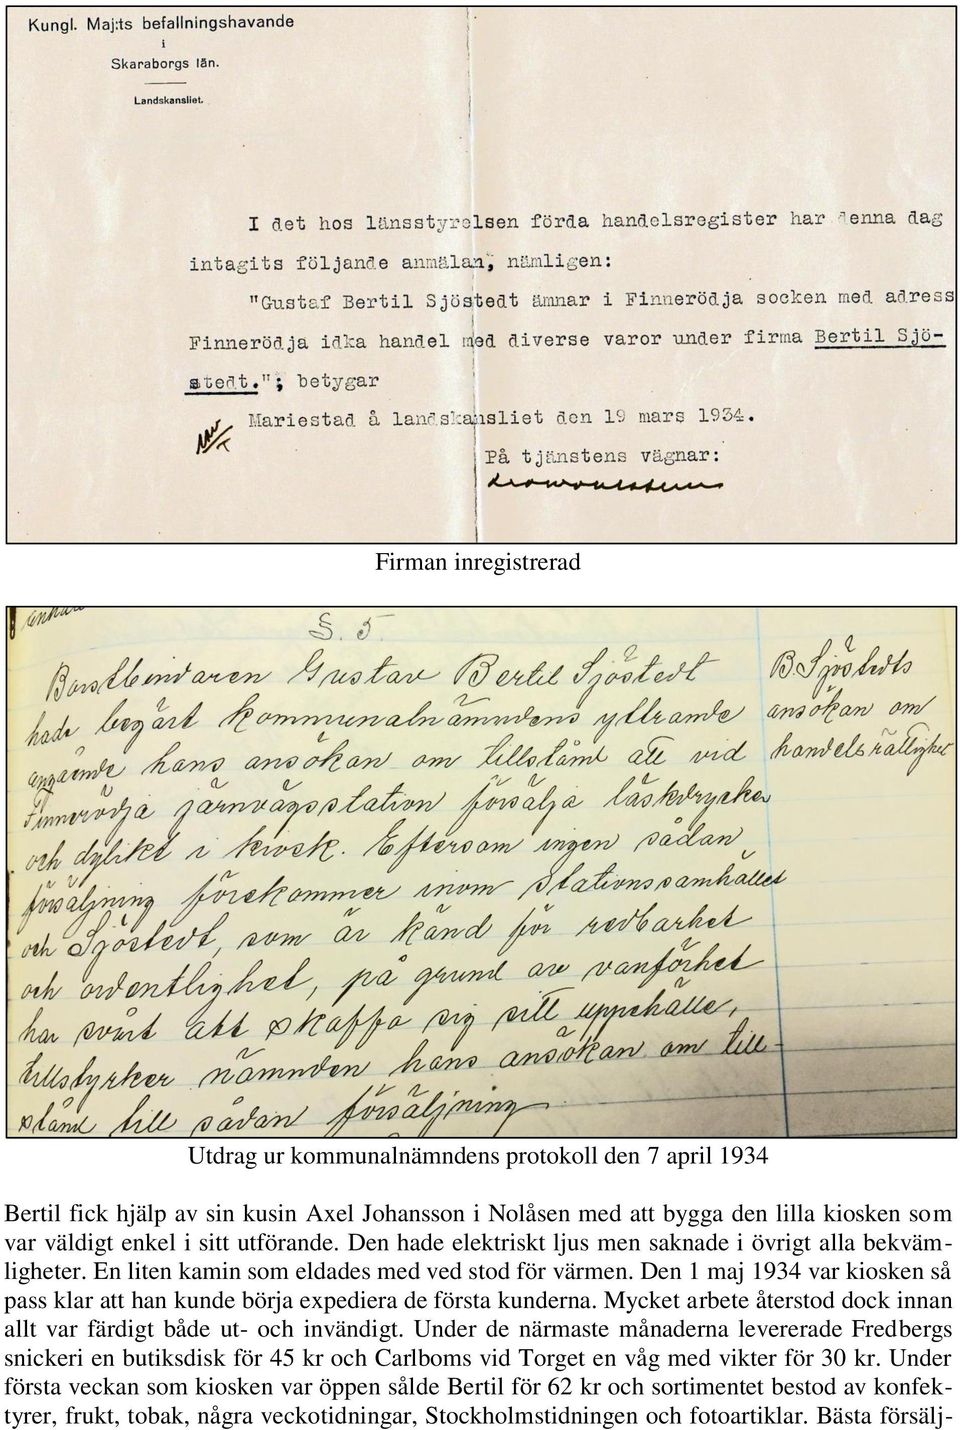 Kungl. Maj:ts befallningshavande
i
Skaraborgs län.
Landskansliet.
I det hos länsstyrelsen förda handelsregister har denna dag
intagits följande anmälan, nämligen:
"Gustaf Bertil Sjöstedt ämnar i Finnerödja socken med adress
Finnerödja idka handel med diverse varor under firma Bertil Sjö-
stedt."; betygar
Mariestad å landskansliet den 19 mars 1934.
På tjänstens vägnar:
Firman inregistrerad
§. 5.
Borstbindaren Gustav Bertil Sjöstedt
hade begärt kommunalnämndens yttrande
angående hans ansökan om tillstånd att vid
Finnerödja järnvägsstation försälja läskdrycker
och dylikt i kiosk. Eftersom ingen sådan
försäljning förekommer inom stationssamhället
och Sjöstedt, som är känd för redbarhet
och ordentlighet, på grund av vanförhet
har svårt att skaffa sig sitt uppehälle,
tillstyrker nämnden hans ansökan om till-
stånd till sådan försäljning.
B. Sjöstedts
ansökan om
handelsrättighet
Utdrag ur kommunalnämndens protokoll den 7 april 1934
Bertil fick hjälp av sin kusin Axel Johansson i Nolåsen med att bygga den lilla kiosken som
var väldigt enkel i sitt utförande. Den hade elektriskt ljus men saknade i övrigt alla bekväm-
ligheter. En liten kamin som eldades med ved stod för värmen. Den 1 maj 1934 var kiosken så
pass klar att han kunde börja expediera de första kunderna. Mycket arbete återstod dock innan
allt var färdigt både ut- och invändigt. Under de närmaste månaderna levererade Fredbergs
snickeri en butiksdisk för 45 kr och Carlboms vid Torget en våg med vikter för 30 kr. Under
första veckan som kiosken var öppen sålde Bertil för 62 kr och sortimentet bestod av konfek-
tyrer, frukt, tobak, några veckotidningar, Stockholmstidningen och fotoartiklar. Bästa försälj-